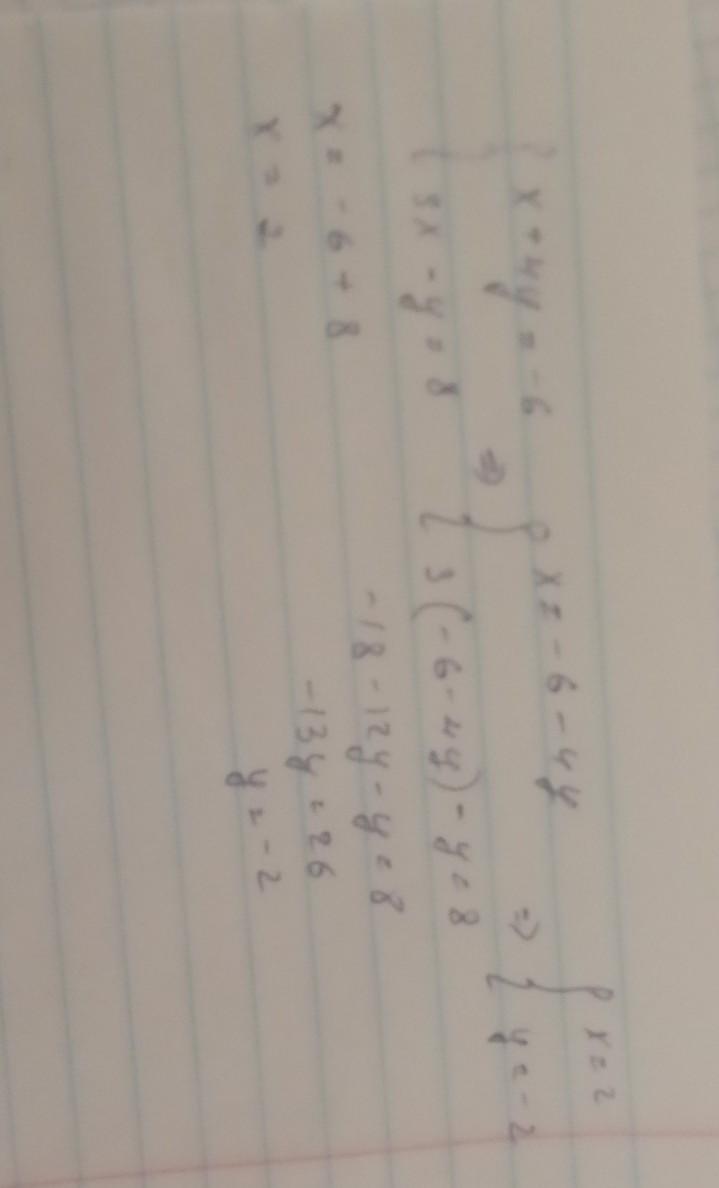 { x + 4y = -6
{ 3x - y = 8
⇒
{ x = -6 - 4y
{ 3(-6 - 4y) - y = 8
-18 - 12y - y = 8
-13y = 26
y = -2
⇒
{ x = 2
{ y = -2
x = -6 + 8
x = 2